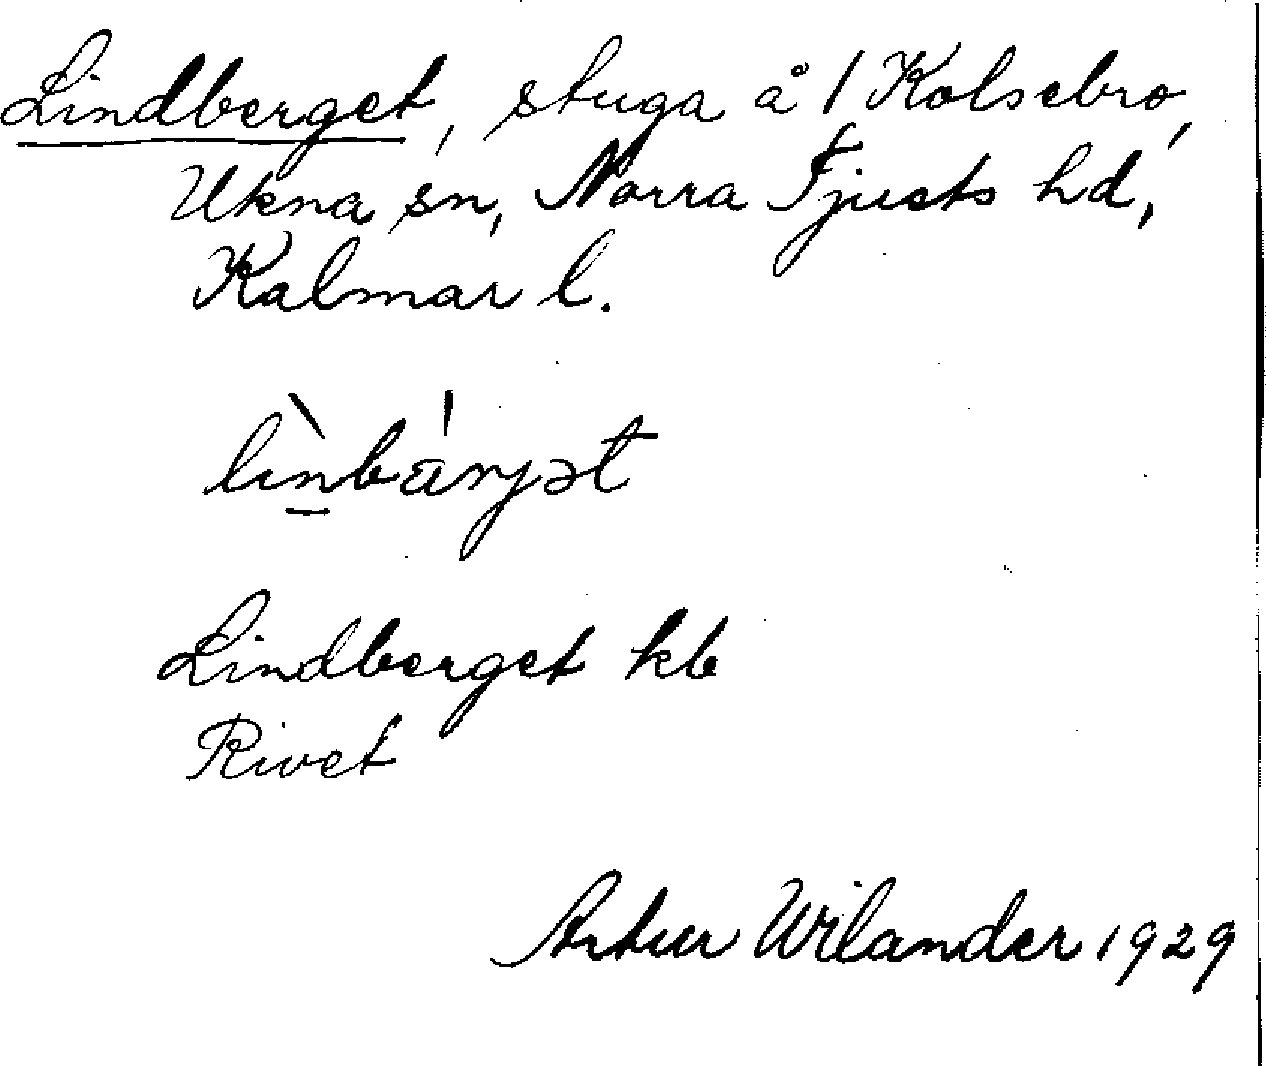 Lindberget, stuga å 1 Kolsebro,
Ukna sn, Norra Tjusts hd,
Kalmar l.
lìnbá̄rjət
Lindberget kb
Rivet
Artur Wilander 1929